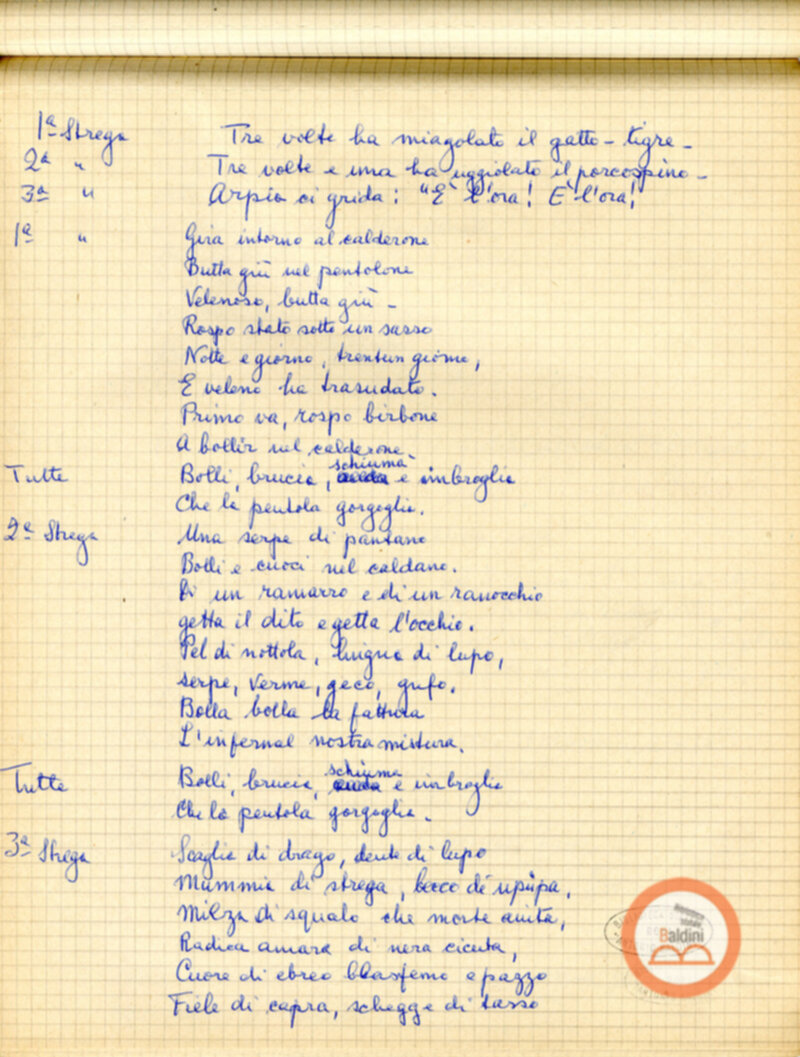 1ª Strega Tre volte ha miagolato il gatto-tigre -
2ª " Tre volte e una ha uggiolato il porcospino -
3ª " Arpia ci grida: "È l'ora! È l'ora!
1ª " Gira intorno al calderone
Butta giù nel pentolone
Velenoso, butta giù -
Rospo stato sotto un sasso
Notte e giorno, trentun giorno,
E veleno ha trasudato.
Primo va, rospo birbone
A bollir nel calderone.
Tutte Bolli, brucia, schiuma e imbroglia
Che la pentola gorgoglia.
2ª Strega Una serpe di pantano
Bolli e cuoci nel caldano.
Di un ramarro e di un ranocchio
getta il dito e getta l'occhio.
Pel di nottola, lingua di lupo,
serpe, verme, geco, gufo.
Bolla bolla la fattura
L'infernal nostra mistura.
Tutte Bolli, brucia, schiuma e imbroglia
Che la pentola gorgoglia.
3ª Strega Scaglia di drago, dente di lupo
Mummia di strega, becco de upùpa,
Milza di squalo che morte aiuta,
Radica amara di nera cicuta,
Cuore di ebreo blasfemo e pazzo
Fiele di capra, schegge di tasso
Biblioteca
statale
Baldini